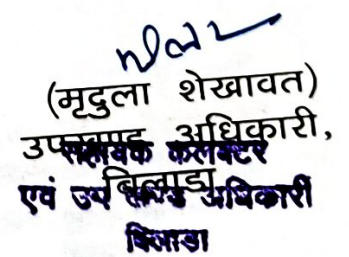 (मृदुला शेखावत)
उपखण्ड अधिकारी,
सहायक कलक्टर
बिलाड़ा
एवं उप खण्ड अधिकारी
बिलाडा